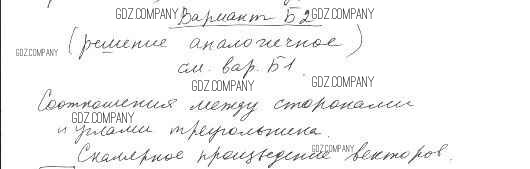 GDZ.COMPANY Вариант Б2 GDZ.COMPANY
GDZ.COMPANY (решение аналогичное)
см. вар. Б1.
GDZ.COMPANY GDZ.COMPANY
Соотношения между сторонами
GDZ.COMPANY
и углами треугольника.
GDZ.COMPANY
Скалярное произведение векторов.